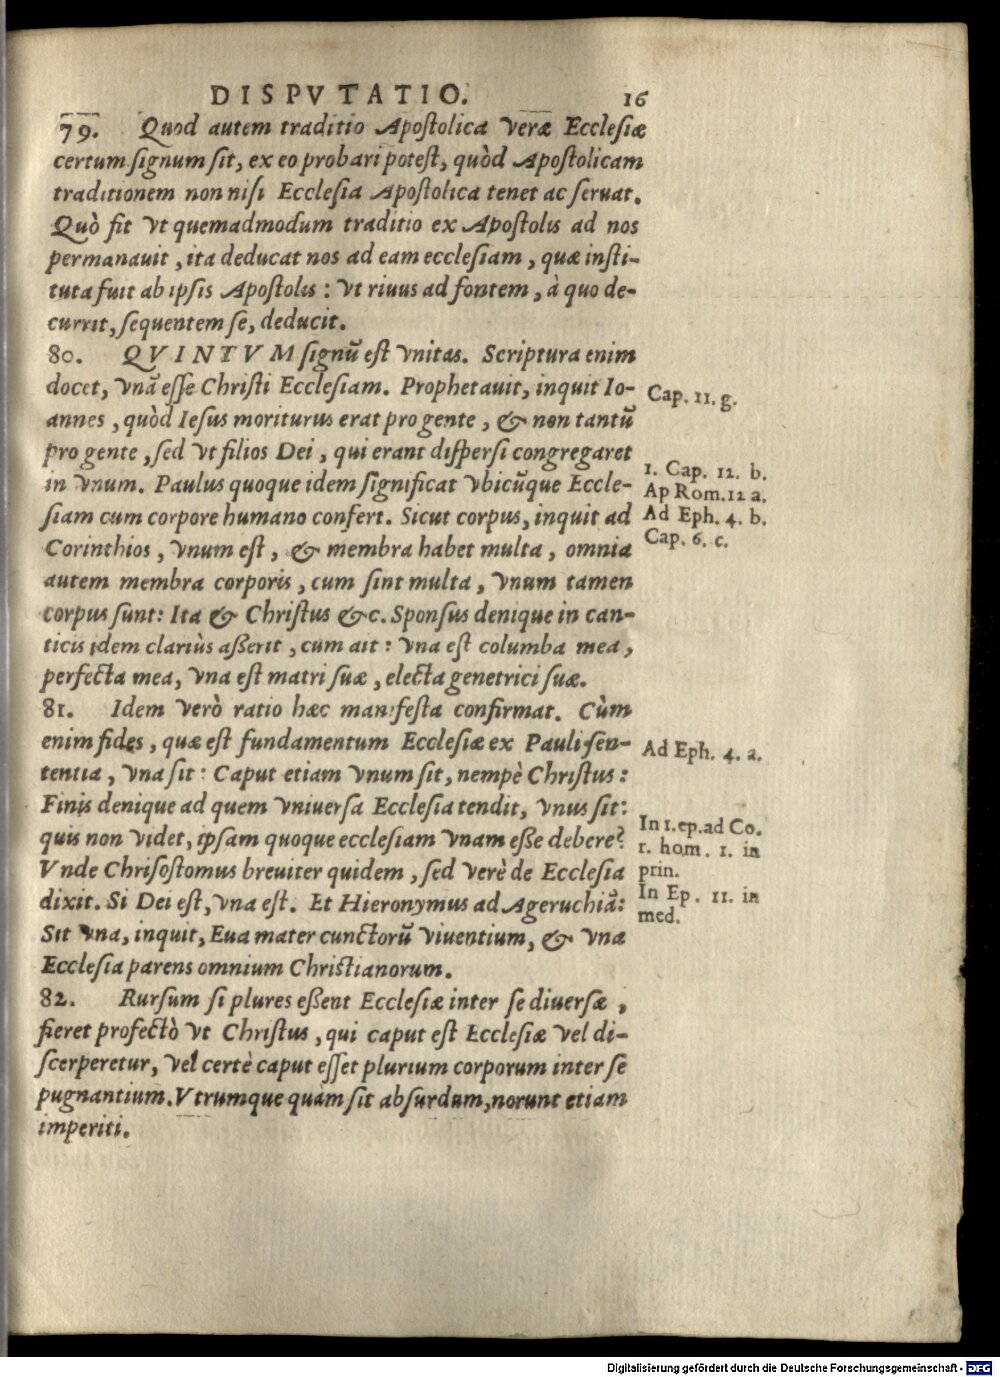 DISPVTATIO. 16
79. Quod autem traditio Apostolica veræ Ecclesiæ
certum signum sit, ex eo probari potest, quòd Apostolicam
traditionem non nisi Ecclesia Apostolica tenet ac seruat.
Quò fit vt quemadmodum traditio ex Apostolis ad nos
permanauit, ita deducat nos ad eam ecclesiam, quæ insti-
tuta fuit ab ipsis Apostolis: vt riuus ad fontem, à quo de-
currit, sequentem se, deducit.
80. QVINTVM signũ est vnitas. Scriptura enim
docet, vnã esse Christi Ecclesiam. Prophetauit, inquit Io-
annes, quòd Iesus moriturus erat pro gente, & non tantũ
pro gente, sed vt filios Dei, qui erant dispersi congregaret
in vnum. Paulus quoque idem significat vbicũque Eccle-
siam cum corpore humano confert. Sicut corpus, inquit ad
Corinthios, vnum est, & membra habet multa, omnia
autem membra corporis, cum sint multa, vnum tamen
corpus sunt: Ita & Christus &c. Sponsus denique in can-
ticis idem clariùs aßerit, cum ait: vna est columba mea,
perfecta mea, vna est matri suæ, electa genetrici suæ.
81. Idem verò ratio hæc manifesta confirmat. Cùm
enim fides, quæ est fundamentum Ecclesiæ ex Pauli sen-
tentia, vna sit: Caput etiam vnum sit, nempè Christus:
Finis denique ad quem vniuersa Ecclesia tendit, vnus sit:
quis non videt, ipsam quoque ecclesiam vnam eße debere?
Vnde Chrisostomus breuiter quidem, sed verè de Ecclesia
dixit. Si Dei est, vna est. Et Hieronymus ad Ageruchiã:
Sit vna, inquit, Eua mater cunctorũ viuentium, & vna
Ecclesia parens omnium Christianorum.
82. Rursum si plures eßent Ecclesiæ inter se diuersæ,
fieret profectò vt Christus, qui caput est Ecclesiæ vel di-
scerperetur, vel certè caput esset plurium corporum inter se
pugnantium. Vtrumque quàm sit absurdum, norunt etiam
imperiti.
Cap. 11. g.
1. Cap. 12. b.
Ap Rom. 12 a.
Ad Eph. 4. b.
Cap. 6. c.
Ad Eph. 4. a.
In 1. ep. ad Co.
r. hom. 1. in
prin.
In Ep. 11. in
med.
Digitalisierung gefördert durch die Deutsche Forschungsgemeinschaft - DFG